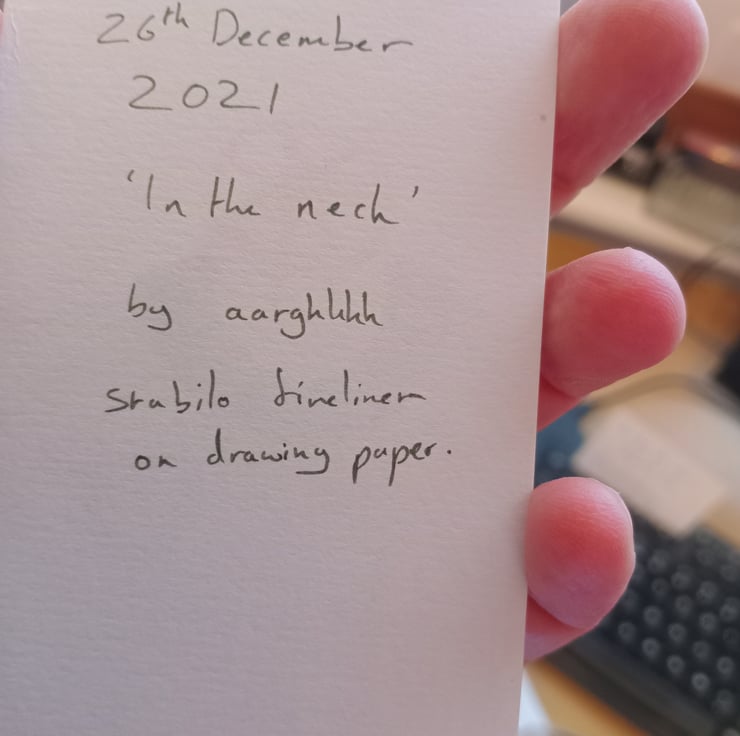 26th December
2021
'In the neck'
by aarghhhh
Stabilo fineliner
on drawing paper.